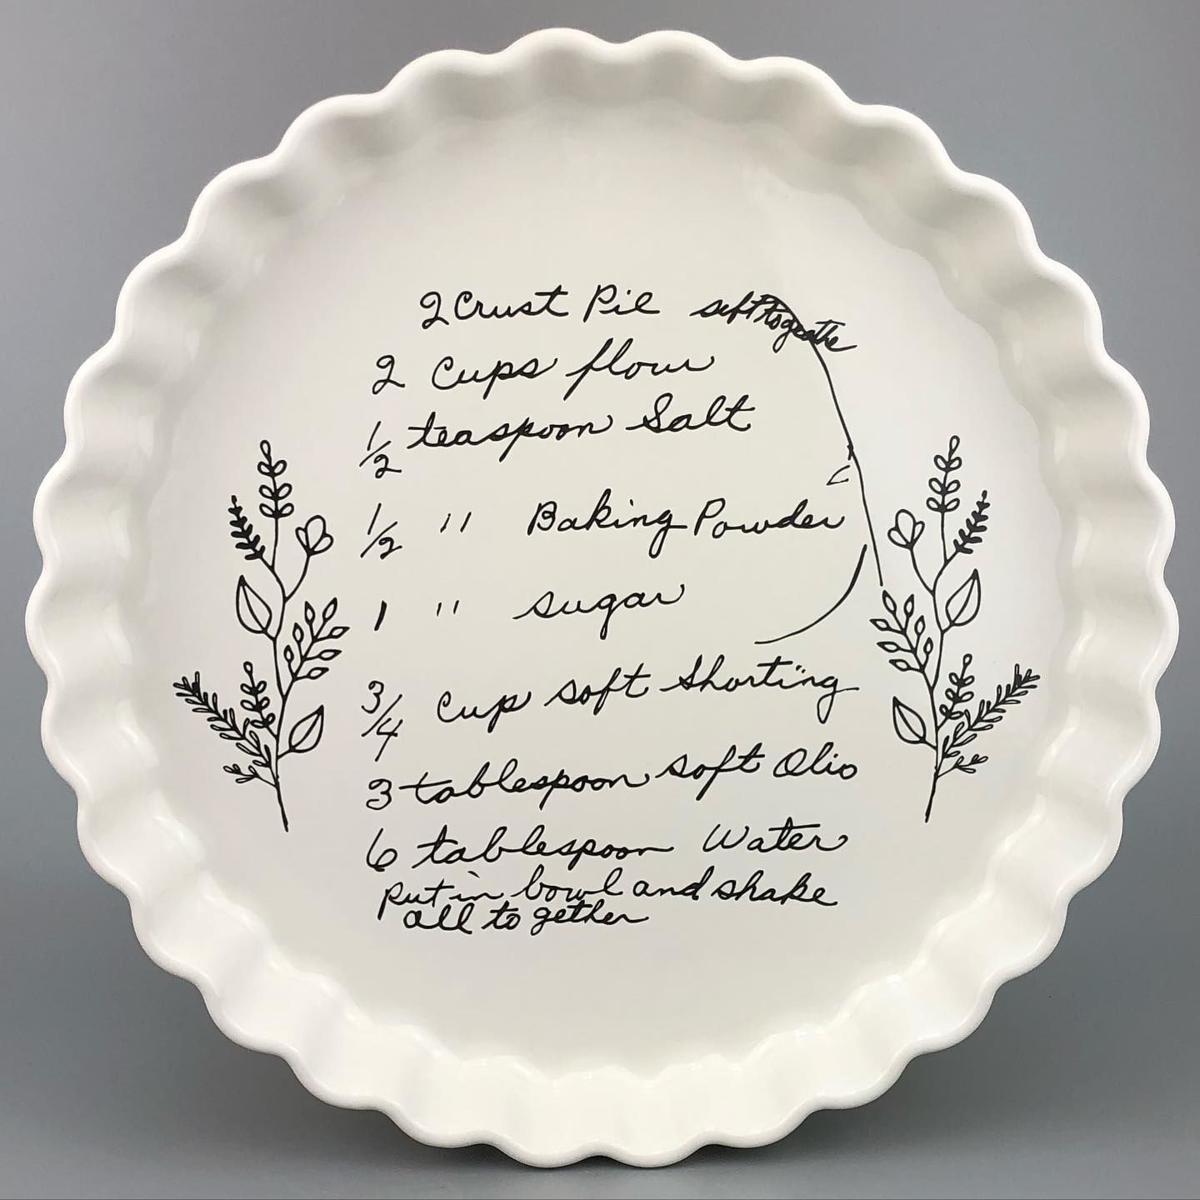 2 Crust Pie sift together
2 Cups flour
1/2 teaspoon Salt
1/2 " Baking Powder
1 " sugar
3/4 Cup soft Shorting
3 tablespoon soft Olio
6 tablespoon Water
Put in bowl and shake
all to gether